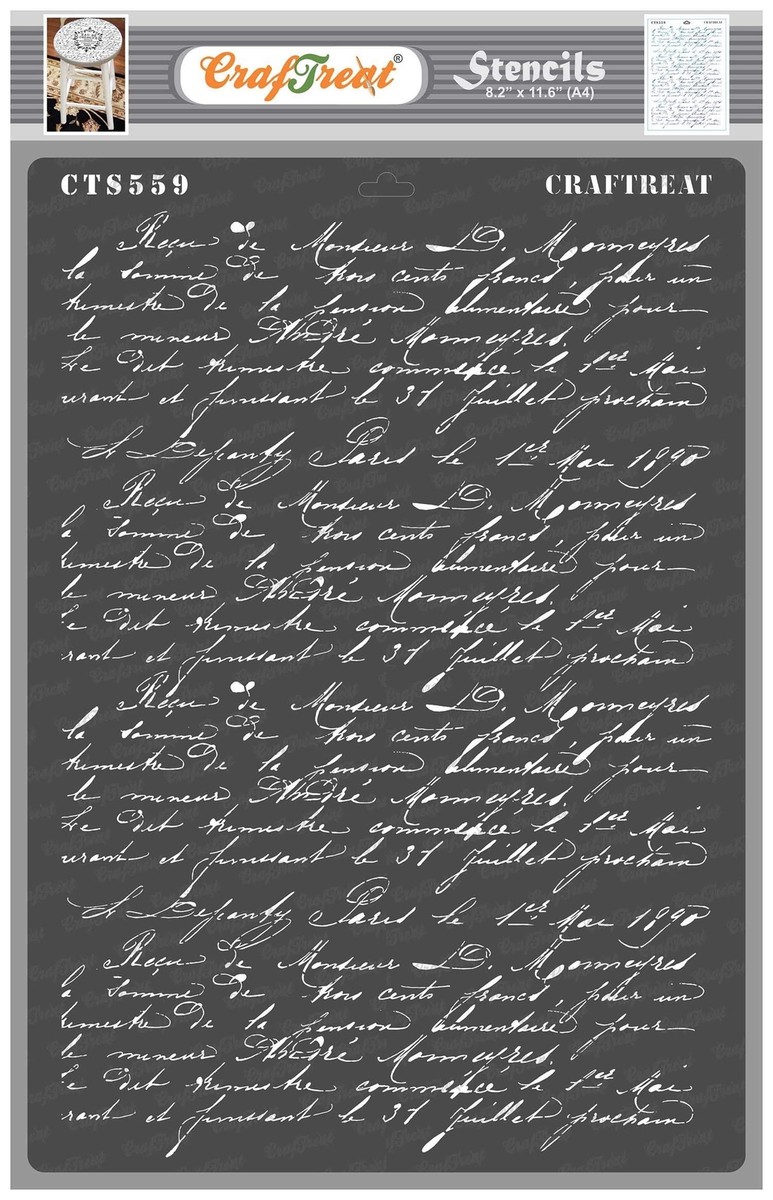 CrafTreat®
Stencils
8.2" x 11.6" (A4)
CTS559
CRAFTREAT
Reçu de Monsieur D. Monmeyres
la Somme de trois cents francs, pour un
trimestre de la pension alimentaire pour
le mineur André Monmeyres.
Le dit trimestre commence le 1er Mai
urant et finissant le 31 Juillet prochain
Paris le 1er Mai 1890
Reçu de Monsieur D. Monmeyres
a Somme de trois cents francs, pour un
rimestre de la pension alimentaire pour
le mineur André Monmeyres.
Le dit trimestre commence le 1er Mai
rant et finissant le 31 Juillet prochain
Reçu de Monsieur D. Monmeyres
la Somme de trois cents francs, pour un
trimestre de la pension alimentaire pour
le mineur André Monmeyres.
Le dit trimestre commence le 1er Mai
urant et finissant le 31 Juillet prochain
Paris le 1er Mai 1890
Reçu de Monsieur D. Monmeyres
a Somme de trois cents francs, pour un
rimestre de la pension alimentaire pour
le mineur André Monmeyres.
Le dit trimestre commence le 1er Mai
rant et finissant le 31 Juillet prochain